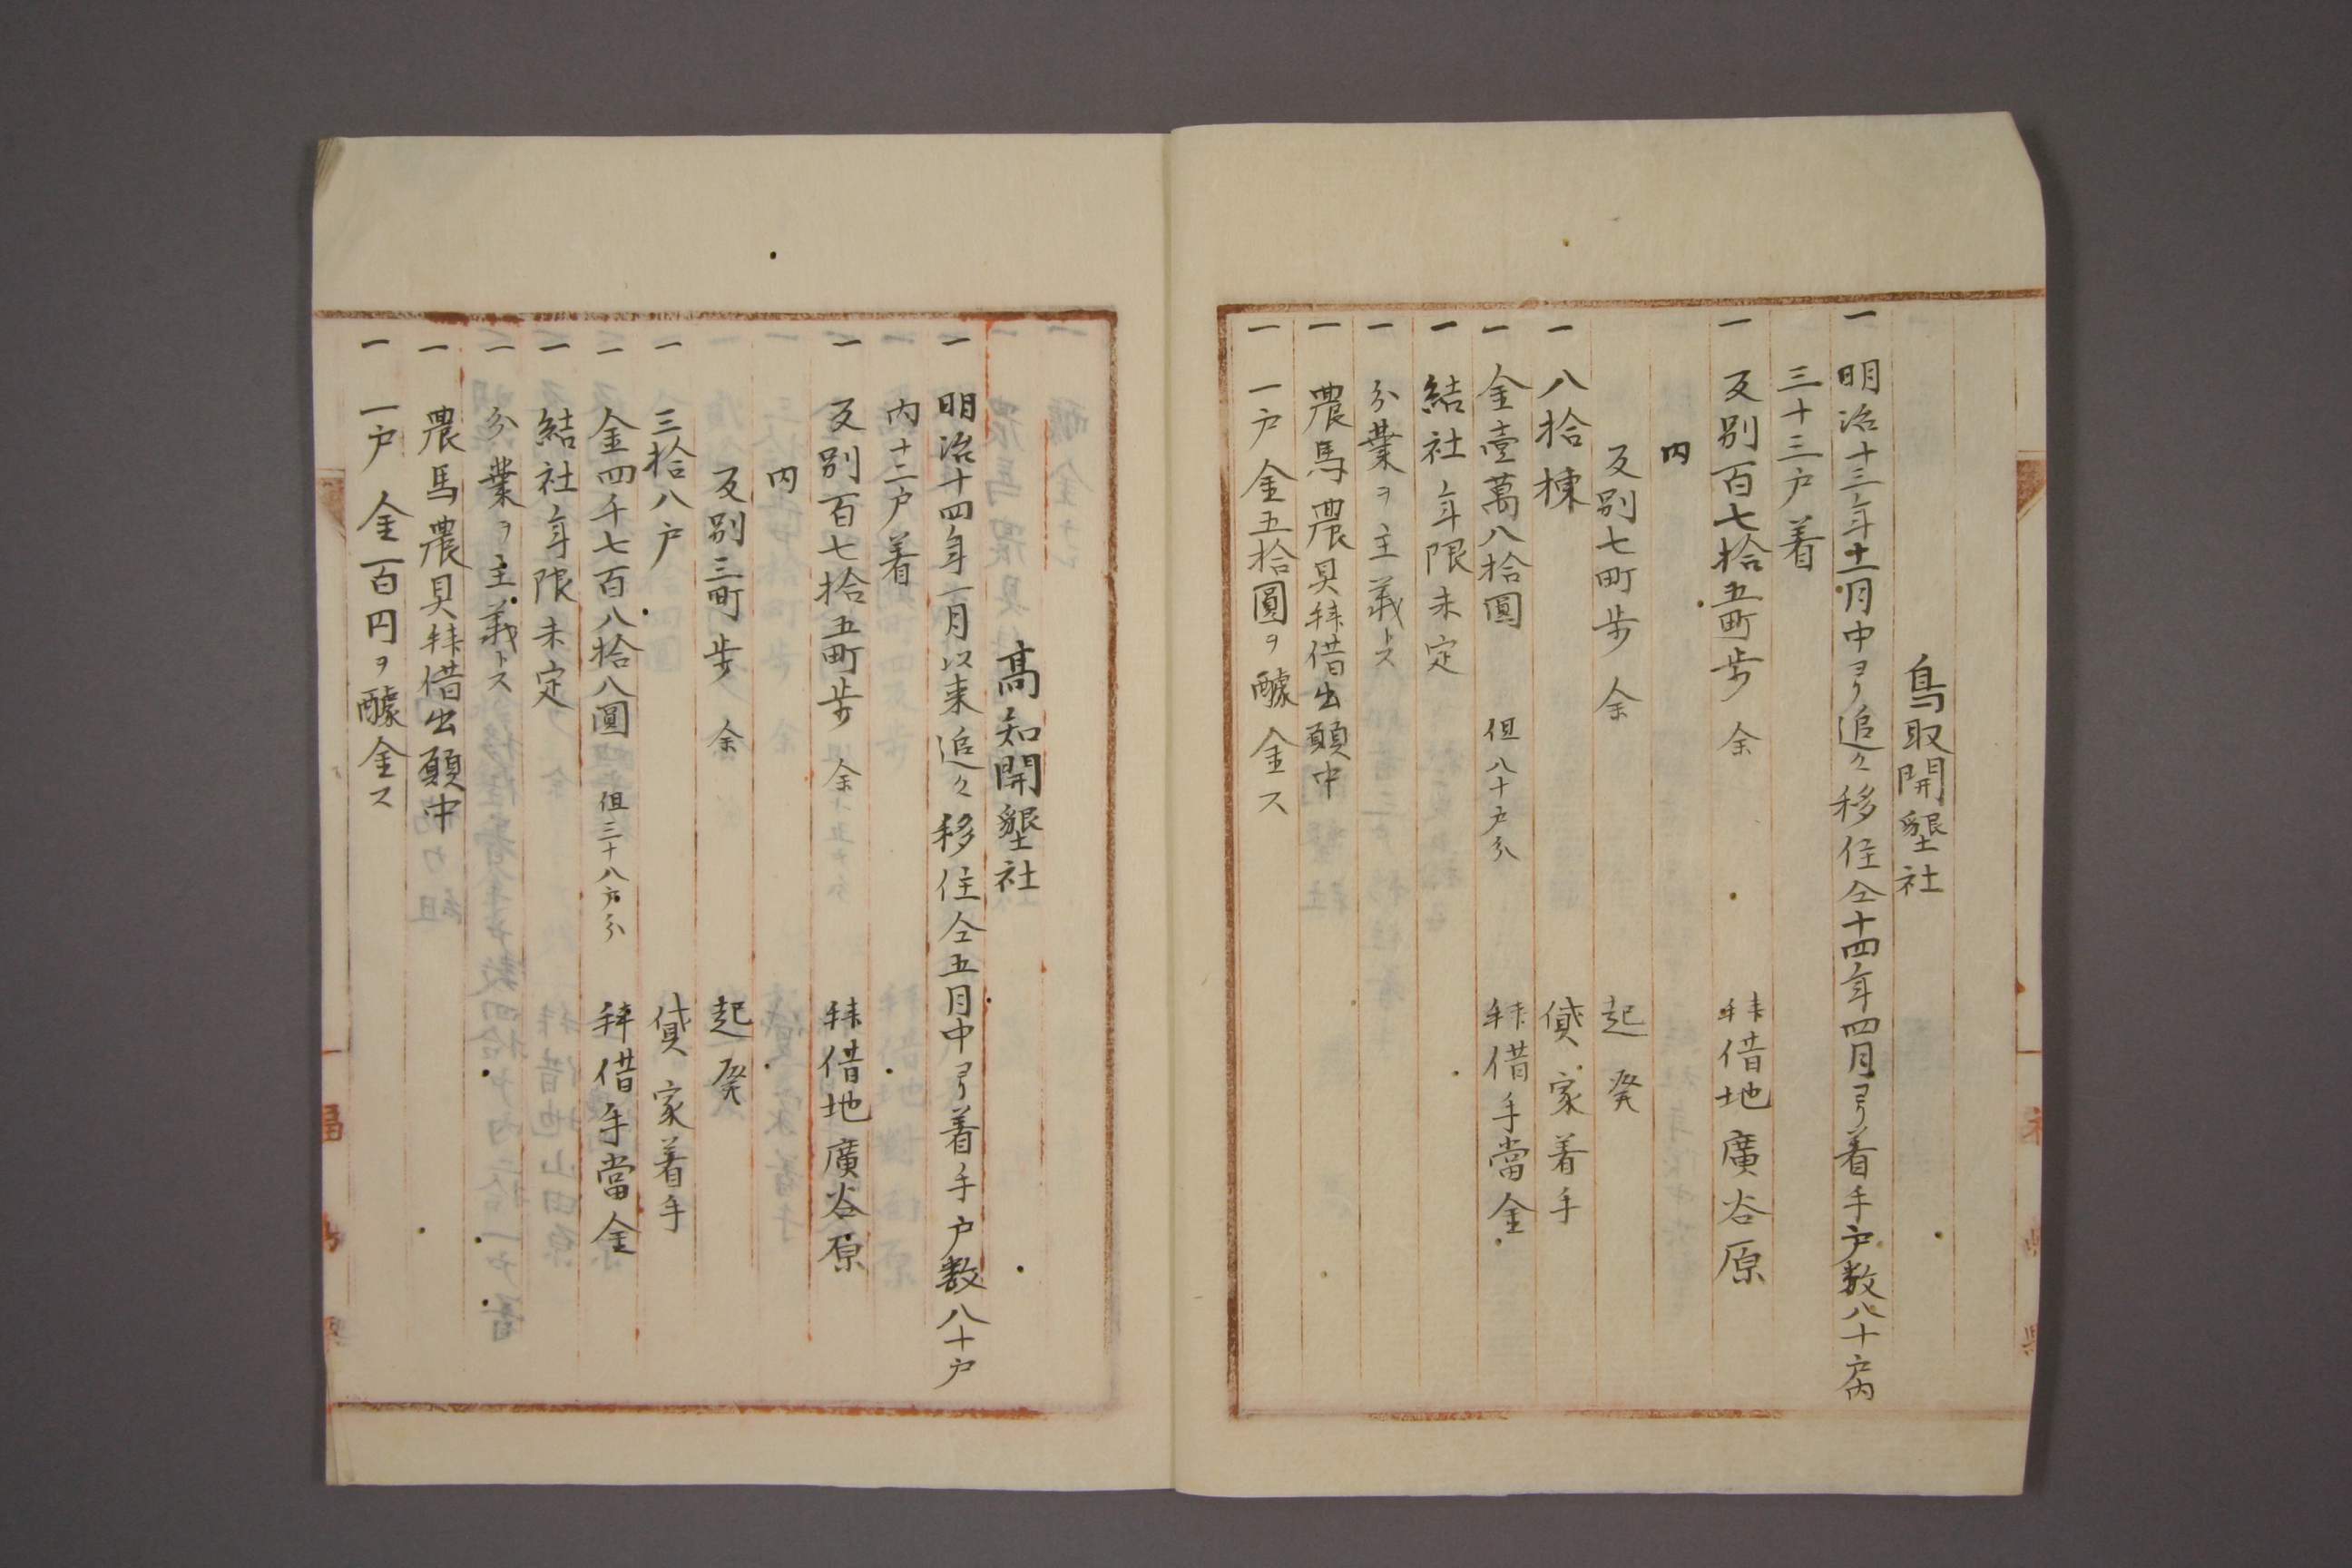 鳥取開墾社
一 明治十三年十一月中ヨリ追々移住仝十四年四月ヨリ着手戸数八十戸内
三十三戸着
一 反別百七拾五町歩余 拝借地廣谷原
内
反別七町歩余 起発
一 八拾棟 貸家着手
一 金壹萬八拾圓 但八十戸分 拝借手當金
一 結社年限未定
一 分業ヲ主義トス
一 農馬農具拝借出願中
一 一戸金五拾圓ヲ醵金ス
高知開墾社
一 明治十四年一月以来追々移住仝五月中ヨリ着手戸数八十戸
内十二戸着
一 反別百七拾五町歩余 拝借地廣谷原
内
反別三町歩余 起発
一 三拾八戸 貸家着手
一 金四千七百八拾八圓 但三十八戸分 拝借手當金
一 結社年限未定
一 分業ヲ主義トス
一 農馬農具拝借出願中
一 一戸金一百円ヲ醵金ス